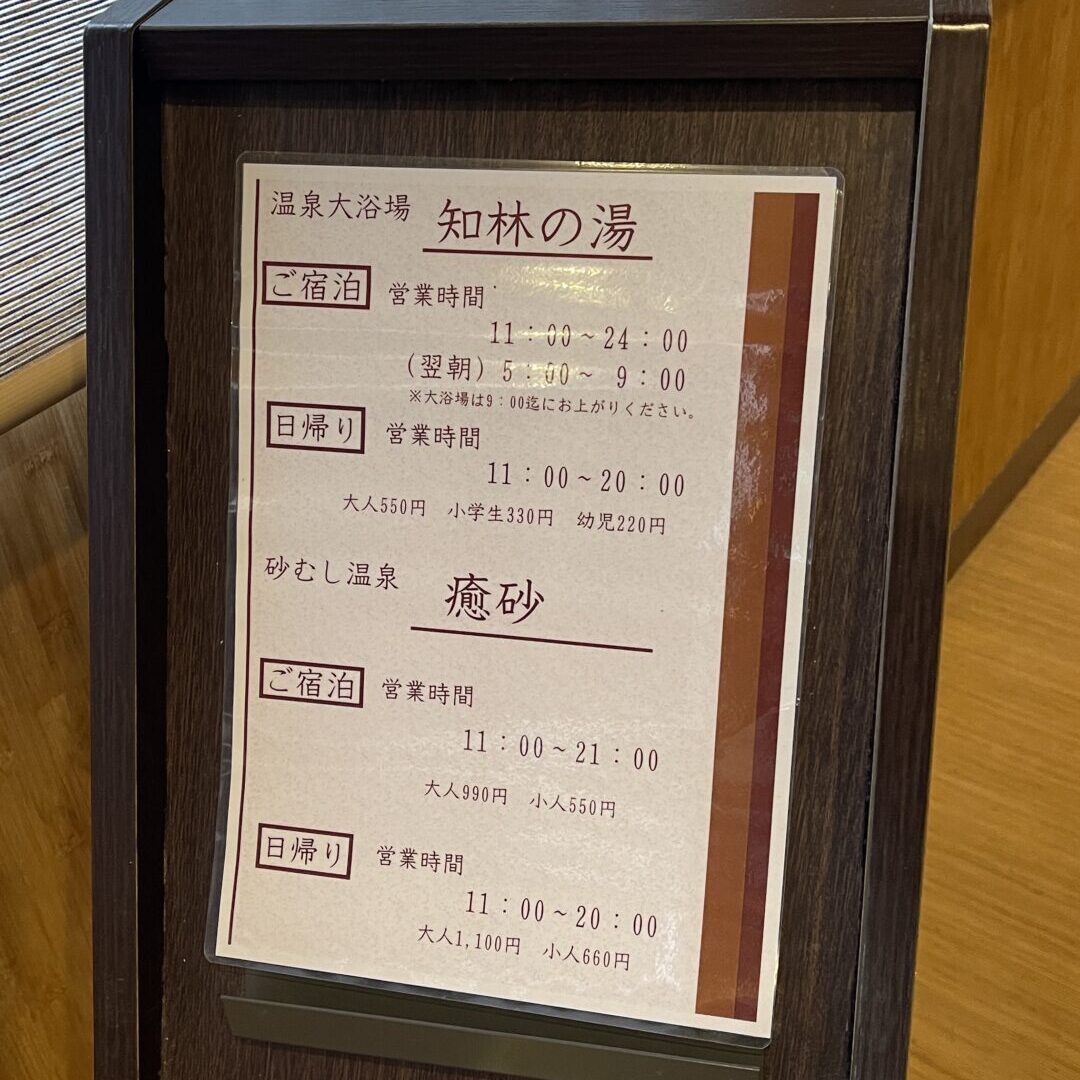 温泉大浴場 知林の湯
ご宿泊 営業時間
11:00~24:00
(翌朝) 5:00~ 9:00
※大浴場は9:00迄にお上がりください。
日帰り 営業時間
11:00~20:00
大人550円 小学生330円 幼児220円
砂むし温泉 癒砂
ご宿泊 営業時間
11:00~21:00
大人990円 小人550円
日帰り 営業時間
11:00~20:00
大人1,100円 小人660円